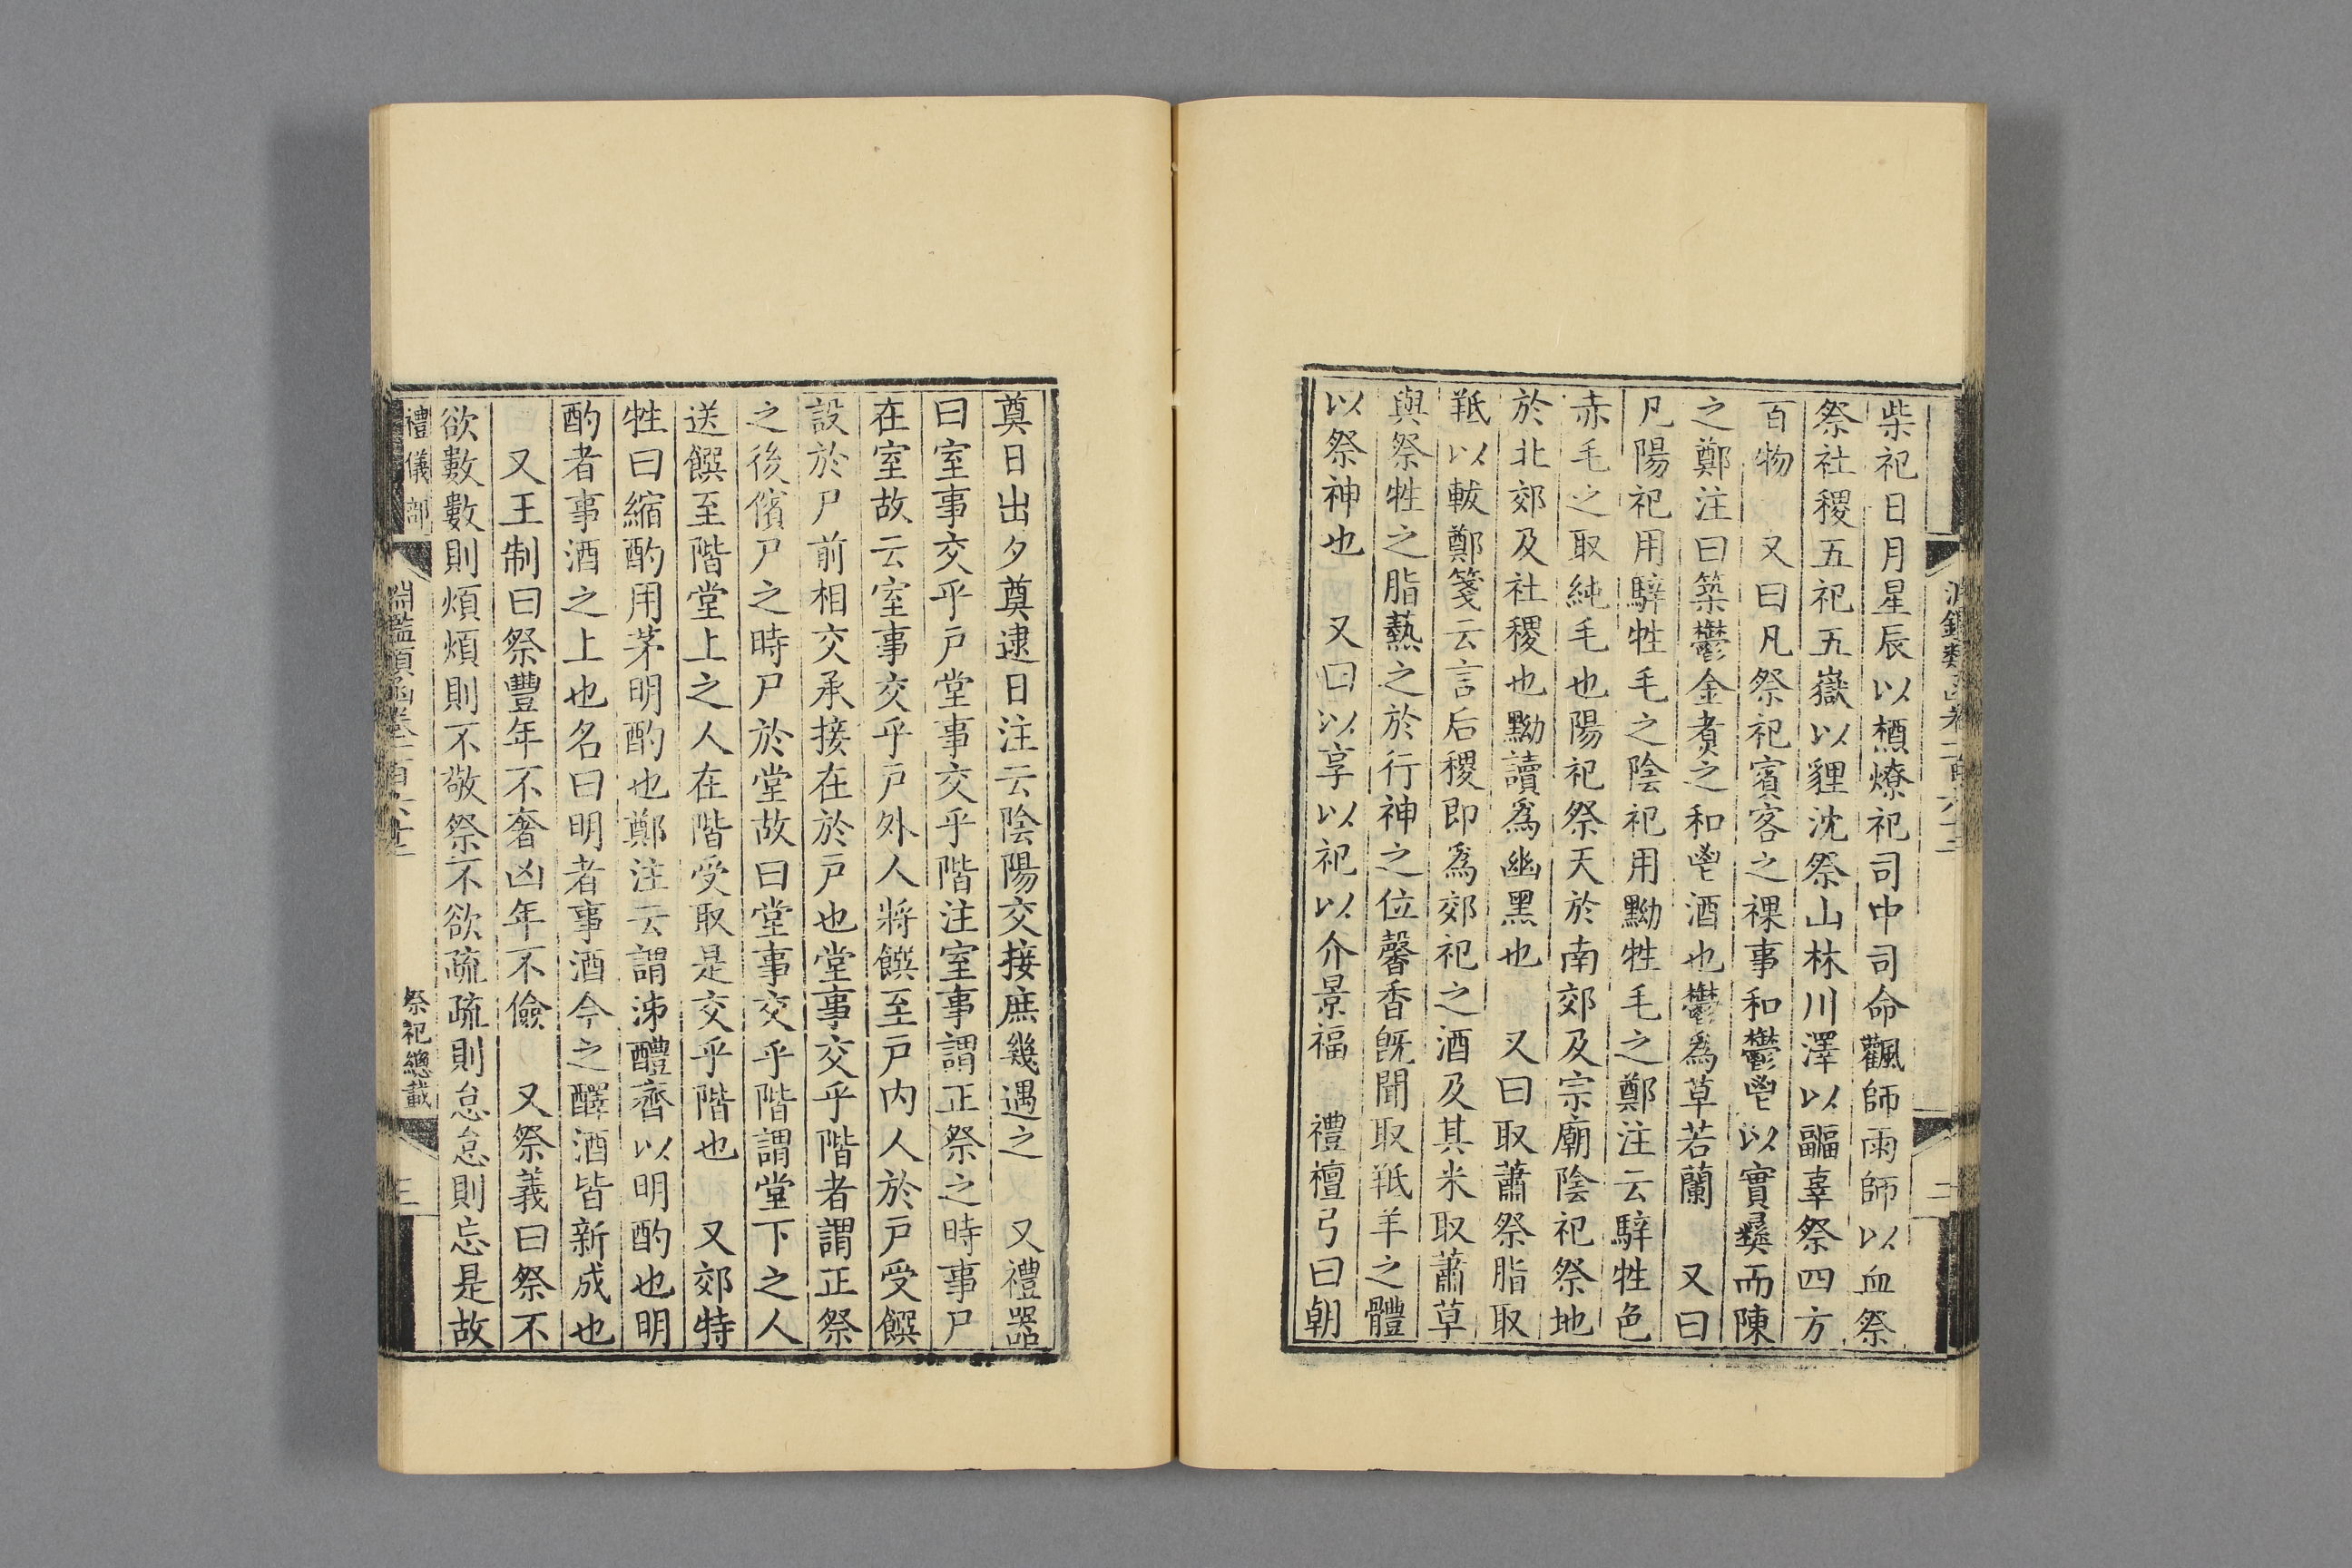 柴祀日月星辰以槱燎祀司中司命飌師雨師以血祭
祭社稷五祀五嶽以貍沈祭山林川澤以疈辜祭四方
百物　又曰凡祭祀賓客之祼事和鬱鬯以實彝而陳
之鄭注曰築鬱金煑之和鬯酒也鬱為草若蘭　又曰
凡陽祀用騂牲毛之陰祀用黝牲毛之鄭注云騂牲色
赤毛之取純毛也陽祀祭天於南郊及宗廟陰祀祭地
於北郊及社稷也黝讀為幽黑也　又曰取蕭祭脂取
羝以軷鄭箋云言后稷即為郊祀之酒及其米取蕭草
與祭牲之脂爇之於行神之位馨香旣聞取羝羊之體
以祭神也　又曰以享以祀以介景福　禮檀弓曰朝
奠日出夕奠逮日注云陰陽交接庶幾遇之　又禮器
曰室事交乎戶堂事交乎階注室事謂正祭之時事尸
在室故云室事交乎戶外人將饌至戶內人於戶受饌
設於尸前相交承接在於戶也堂事交乎階者謂正祭
之後儐尸之時尸於堂故曰堂事交乎階謂堂下之人
送饌至階堂上之人在階受取是交乎階也　又郊特
牲曰縮酌用茅明酌也鄭注云謂泲醴齊以明酌也明
酌者事酒之上也名曰明者事酒今之醳酒皆新成也
又王制曰祭豐年不奢凶年不儉　又祭義曰祭不
欲數數則煩煩則不敬祭不欲疏疏則怠怠則忘是故
禮儀部
淵鑑類函卷一百六十三
祭祀總載
三